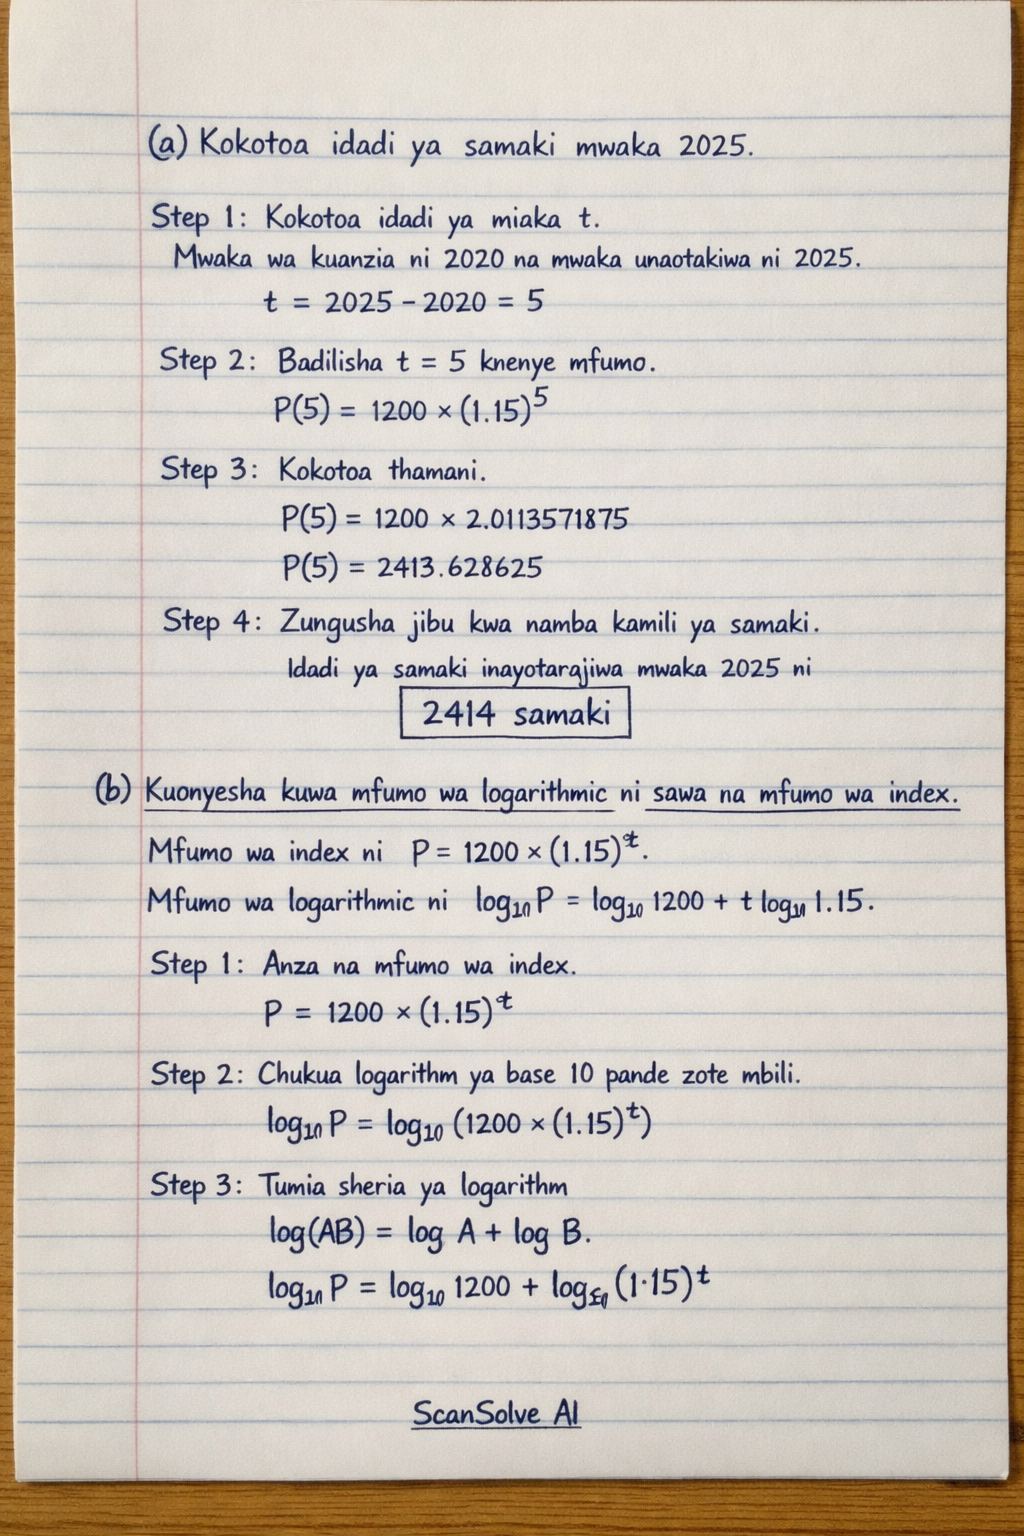 (a) Kokotoa idadi ya samaki mwaka 2025.
Step 1: Kokotoa idadi ya miaka t.
Mwaka wa kuanzia ni 2020 na mwaka unaotakiwa ni 2025.
t = 2025 - 2020 = 5
Step 2: Badilisha t = 5 knenye mfumo.
P(5) = 1200 × (1.15)⁵
Step 3: Kokotoa thamani.
P(5) = 1200 × 2.0113571875
P(5) = 2413.628625
Step 4: Zungusha jibu kwa namba kamili ya samaki.
Idadi ya samaki inayotarajiwa mwaka 2025 ni
2414 samaki
(b) Kuonyesha kuwa mfumo wa logarithmic ni sawa na mfumo wa index.
Mfumo wa index ni P = 1200 × (1.15)ᵗ.
Mfumo wa logarithmic ni log₁₀ P = log₁₀ 1200 + t log₁₀ 1.15.
Step 1: Anza na mfumo wa index.
P = 1200 × (1.15)ᵗ
Step 2: Chukua logarithm ya base 10 pande zote mbili.
log₁₀ P = log₁₀ (1200 × (1.15)ᵗ)
Step 3: Tumia sheria ya logarithm
log(AB) = log A + log B.
log₁₀ P = log₁₀ 1200 + log (1·15)ᵗ
ScanSolve AI